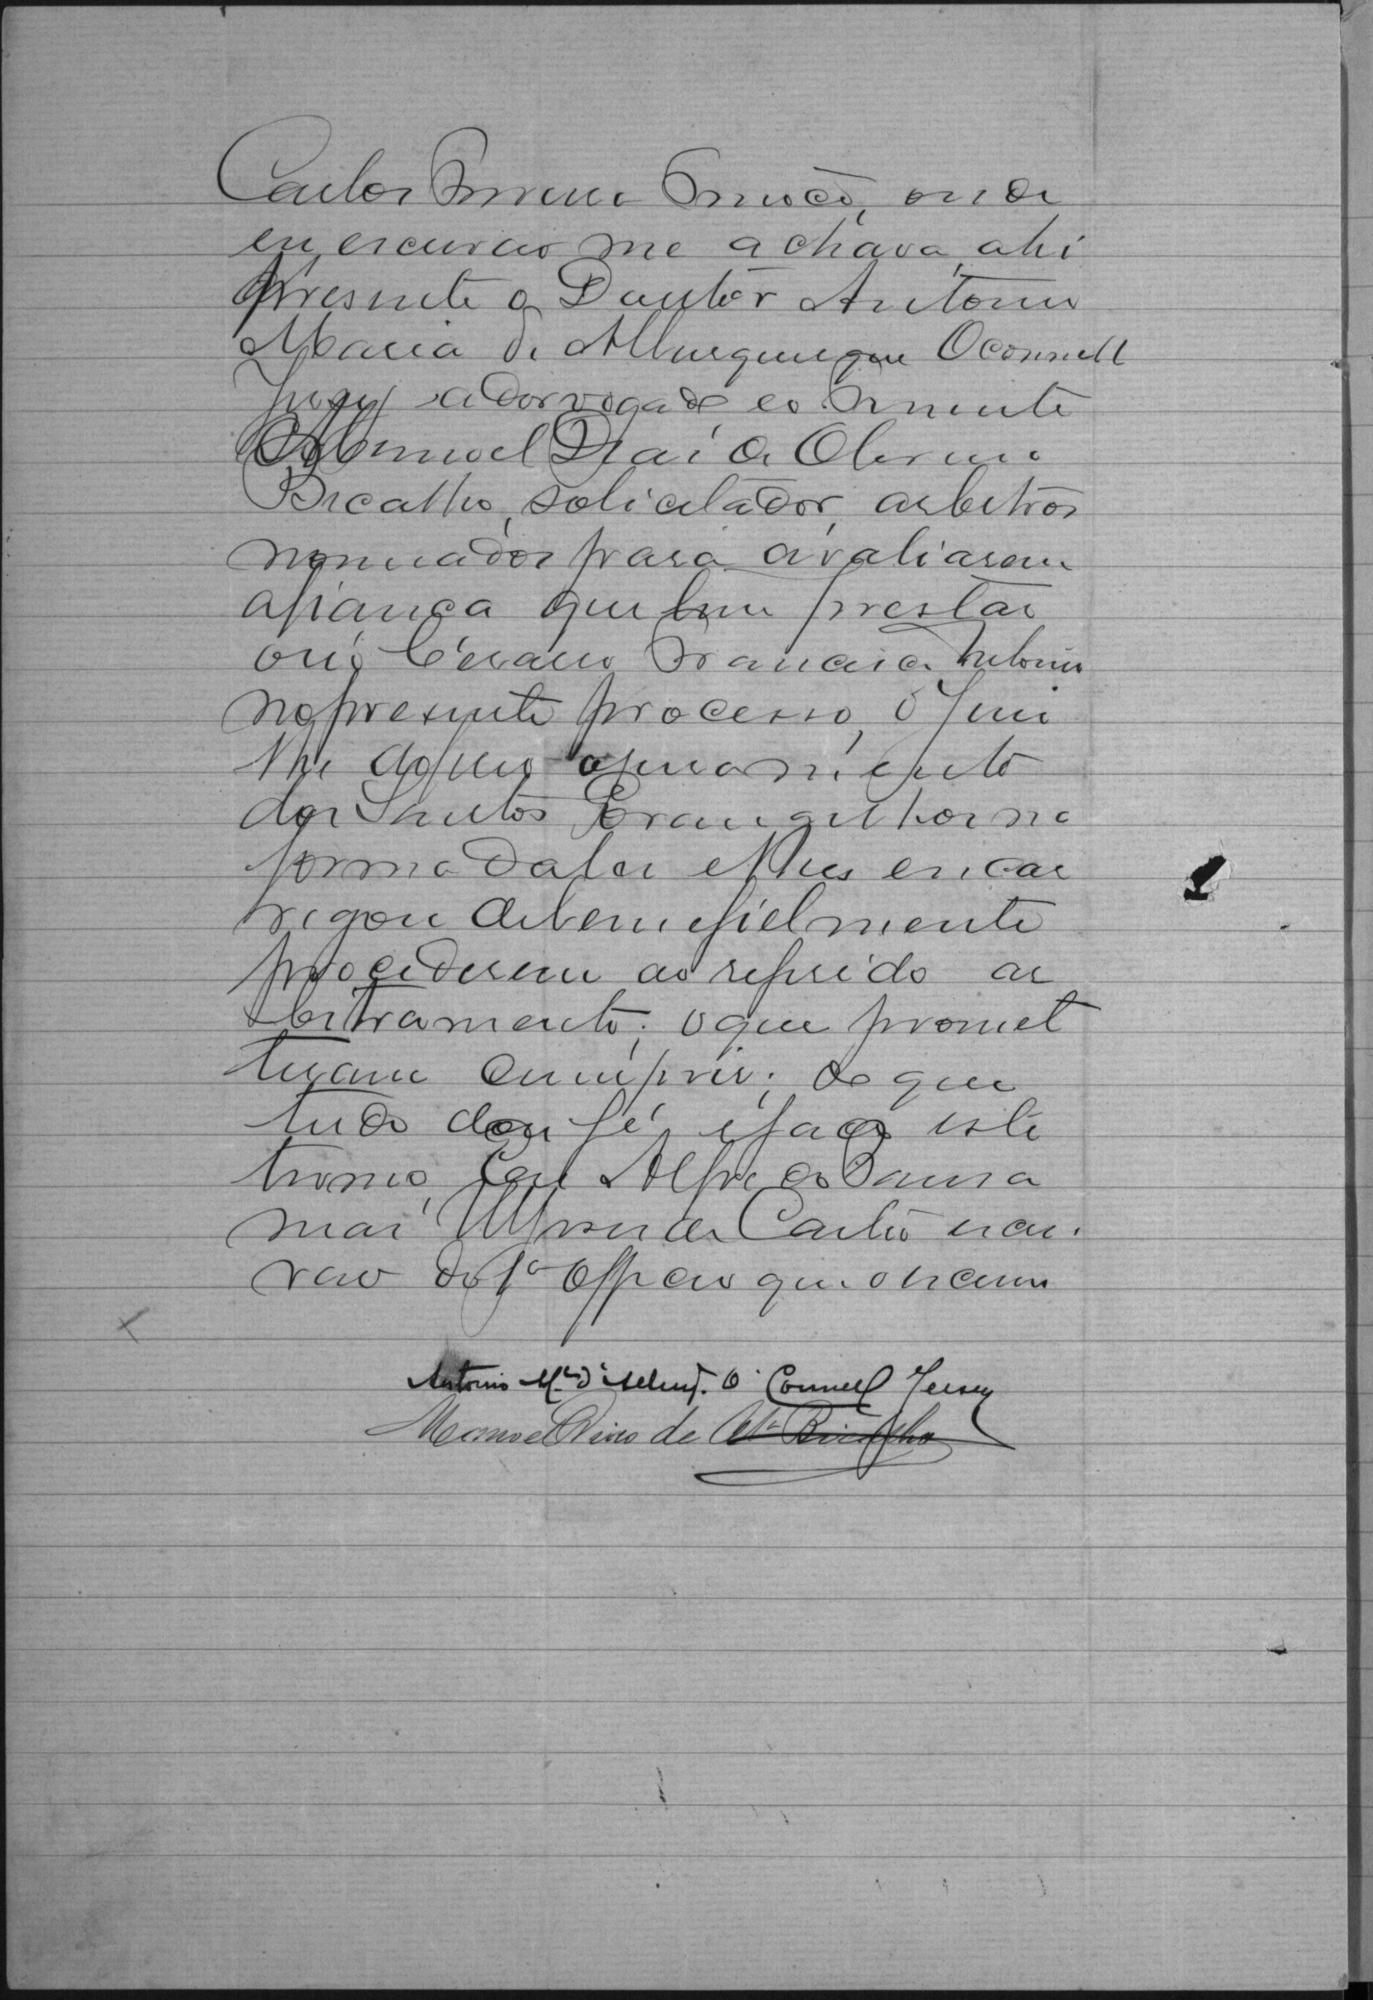 Carlos Ferreira França, onde
eu escrivão me achava, ahi
presente o Doutor Antonio
Maria de Albuquerque Oconnell
Jersey advogado e o Tenente
Manoel Dias de Oliveira
Bicalho, solicitador, arbitros
nomeados para avaliarem
a fiança que tem prestar
o réo Cesario Francisco Antonio
no presente processo, o Juiz
lhe deferio o juramento
dos Santos Evangelhos na
forma da lei e lhes encar
regou de bem e fielmente
procederem ao referido ar
bitramento; o que promet
teram cumprir; do que
tudo dou fé e faço este
termo, Eu Alfredo
de Castro escri
vão do 1º Officio que o escrevi
Antonio M.ª d'Albuq. O'Connell Jersey
Manoel Dias de Olª Bicalho